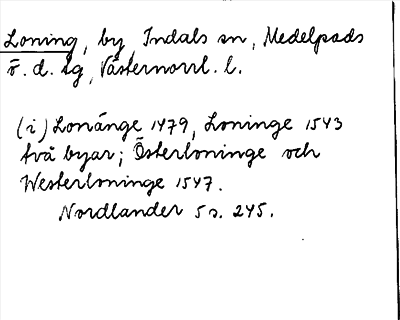 Loning, by, Indals sn, Medelpads
ö. d. tg, Västernorrl. l.
(i) Lonånge 1479, Loninge 1543
två byar; Österloninge och
Westerloninge 1547.
Nordlander 5 s. 245.